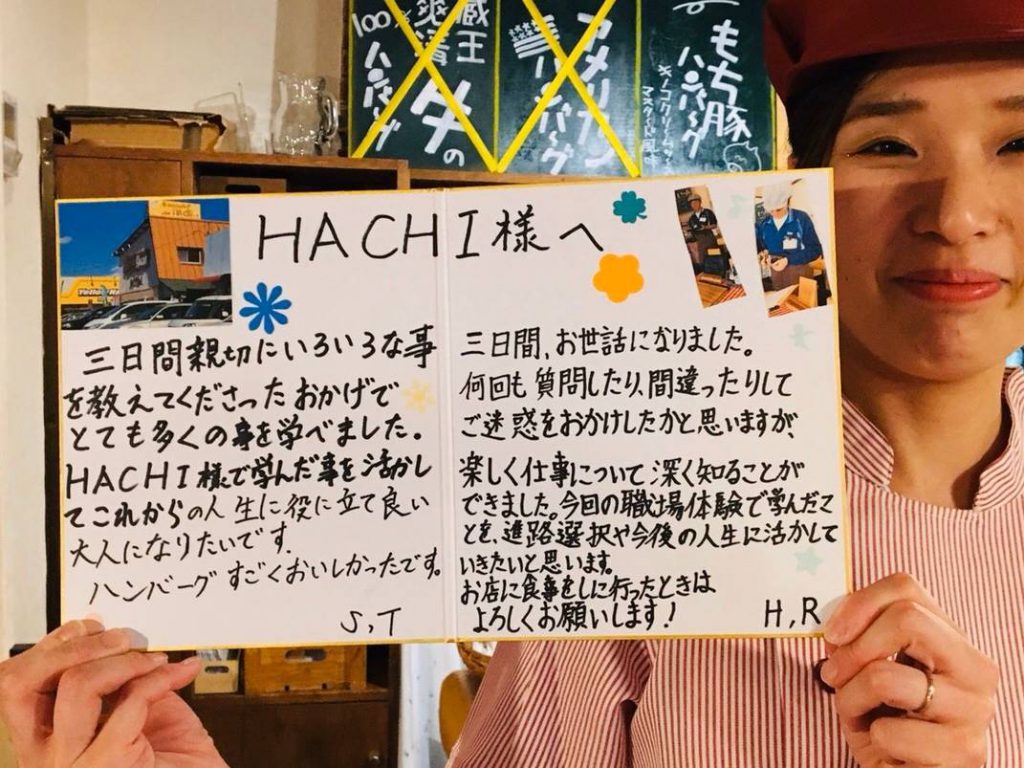 もち豚
ハンバーグ
キノコクリームソース
マスタード風味
アメリカン
ハンバーグ
蔵王
爽清牛の
100%
ハンバーグ
HACHI様へ
三日間親切にいろいろな事
を教えてくださったおかげで
とても多くの事を学べました。
HACHI様で学んだ事を活かし
てこれからの人生に役に立て良い
大人になりたいです。
ハンバーグすごくおいしかったです。
S,T
三日間、お世話になりました。
何回も質問したり、間違ったりして
ご迷惑をおかけしたかと思いますが、
楽しく仕事について深く知ることが
できました。今回の職場体験で学んだこ
とを、進路選択や今後の人生に活かして
いきたいと思います。
お店に食事をしに行ったときは
よろしくお願いします!
H,R